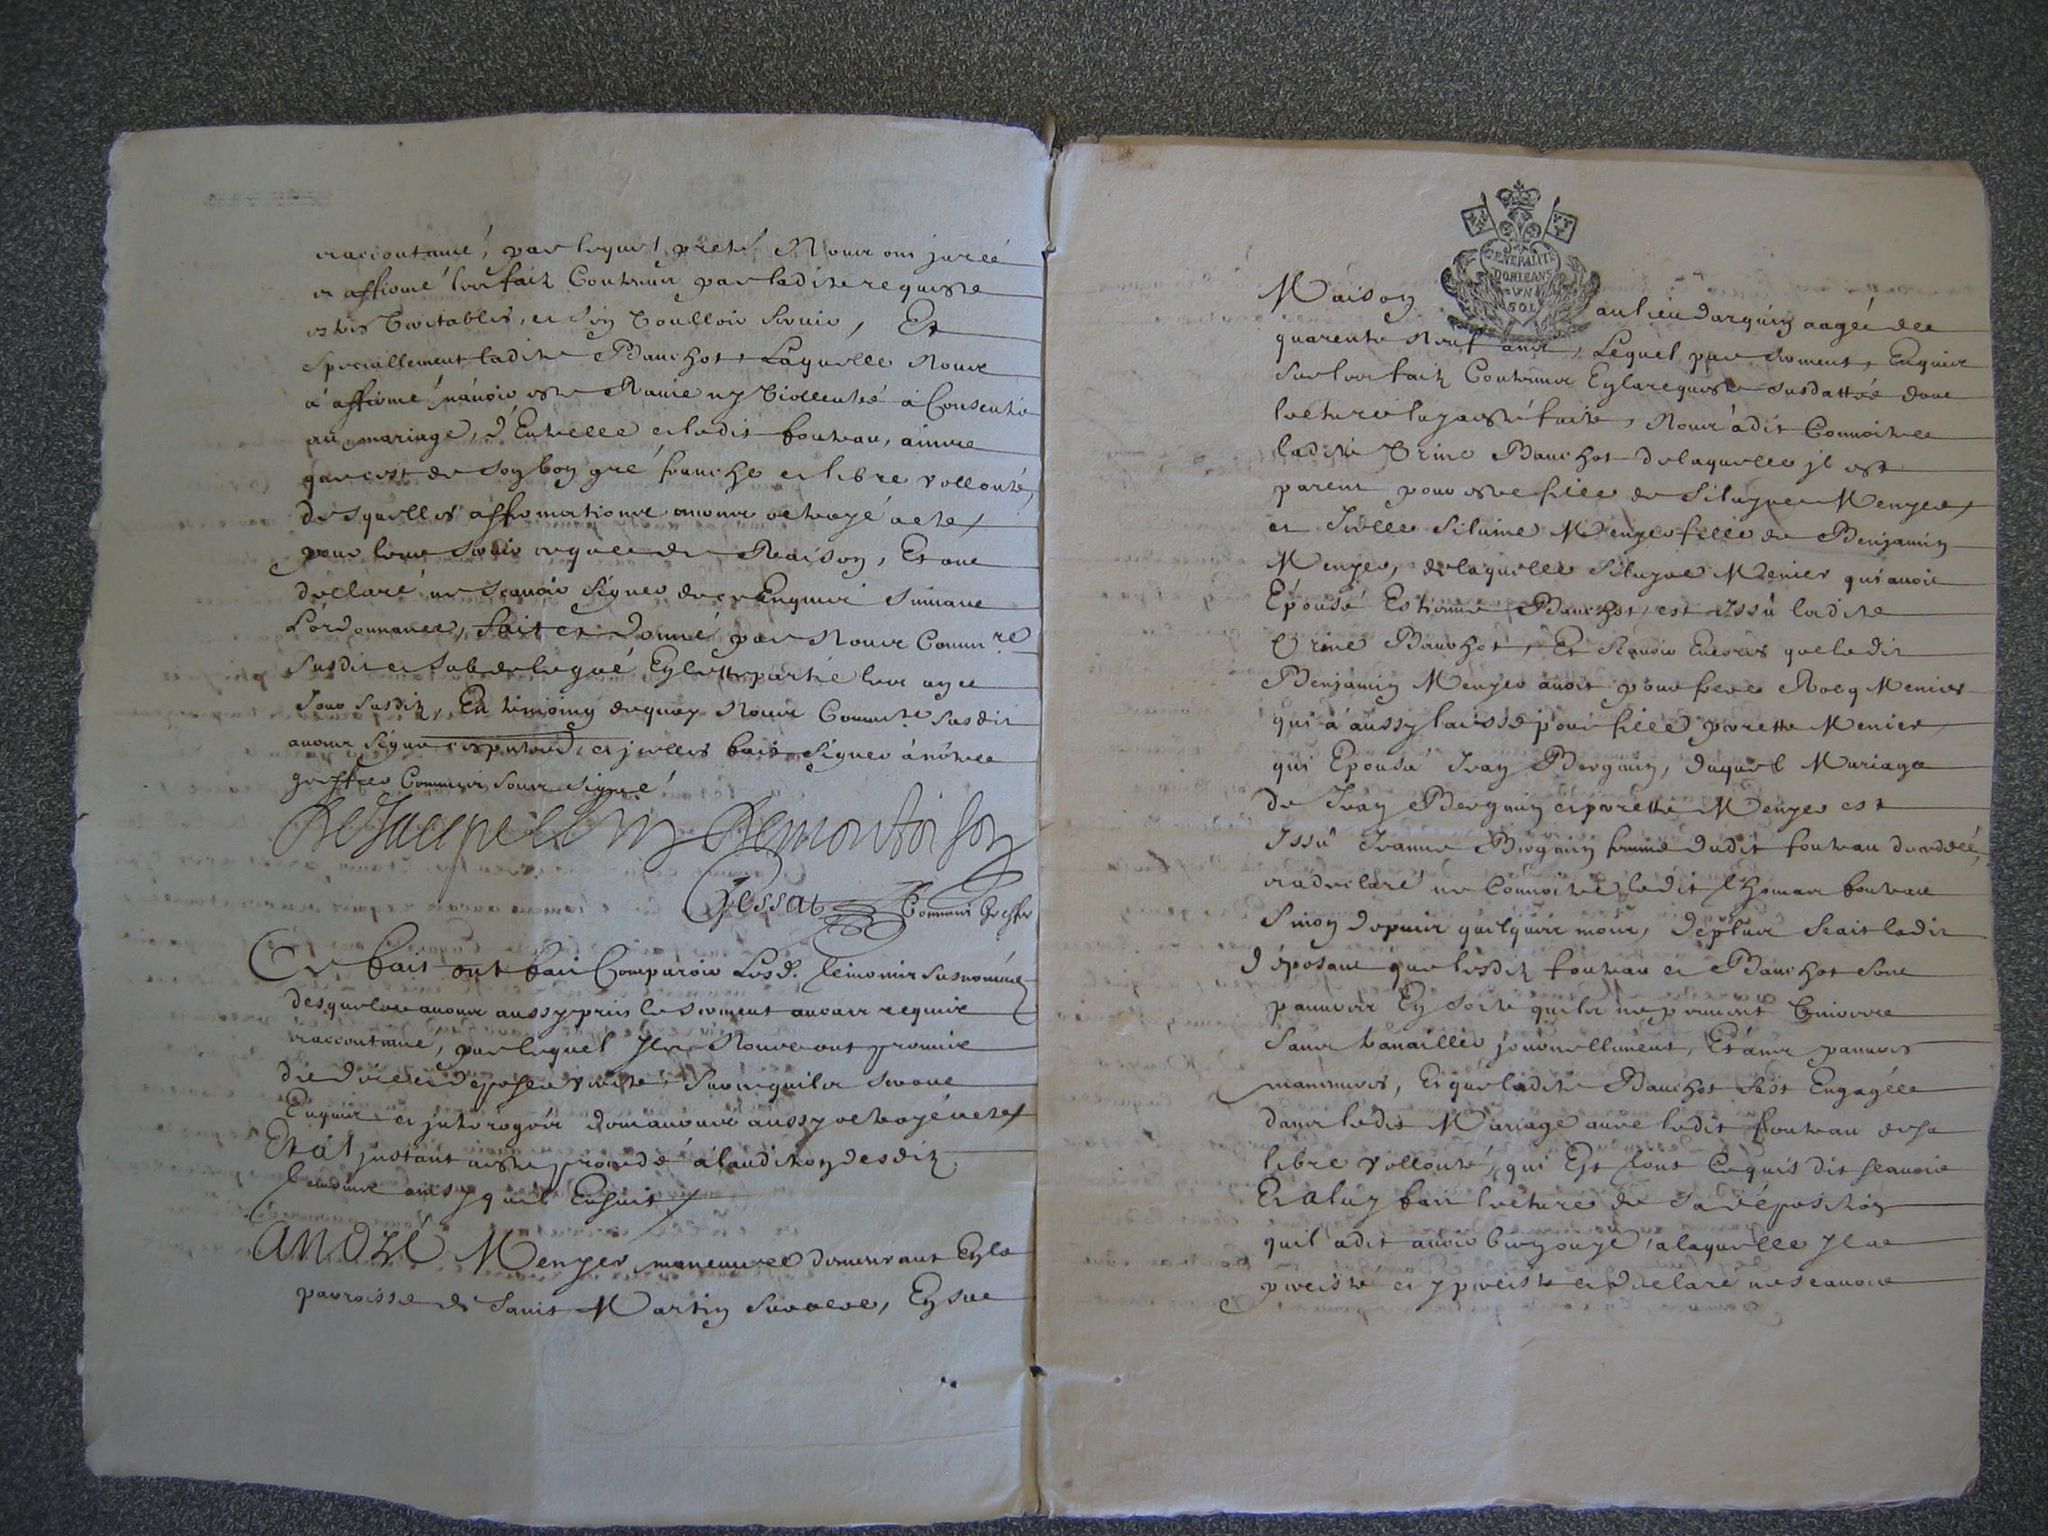 et accoutumé, par lequel preté Nous ont juré
et affirmé les faitz Contenus par ladite requeste
estres Veritables, et s'en Voulloir servir, Et
speciallement ladite Bauchot, Laquelle Nous
a affirmé n'avoir esté Ravie ny Viollentée à Consentir
au mariage, d'Entrelle et ledit fouteau, ainsue
que c'est de son bon gré franche et libre vollonté,
desquelles affirmationts avons octroyé acte
pour leurs servir ce que de Raison, Et ont
declaré ne sçavoir signer de ce Enquis suivant
L'ordonnance, fait et donné par Nous Comm.re
susdit et subdelegué En cette partie les an et
Jour susditz, En temoing de quoy Nous Commre. susdit
avons signé ces presentes, et icelles fait signer à nôtre
greffier Commis soussigné
Gessat Commis Greffier
Ce fait ont fait Comparoir Lesd. temoins susnommés
desquels avons aussy pris le serment au cas requis
et accoutumé, par lequel Ils Nous ont promis
de dire et déposer verité, sur ce quils seront
Enquis et interogés dont avons aussy octroyé acte
Et à l'instant a esté procedé à l'audition desditz
temoins ainsy quil Ensuit
ANDRÉ Menyer maneuvre demeurant En la
parroisse de Saint Martin En sa
Maison au lieu darquin aagé de
GENERALITE
DORLEANS
VN
SOL
quarente Neuf ans, Lequel par serment, Enquis
sur les faitz Contenus En la requeste susdattée dont
lecture luy a esté faite, Nous à dit Connoitre
ladite Bauchot de laquelle il est
parent pour estre fille de Silvyne Menyer
et Icelle Silvine Menyer fille de Benjamin
Menyer, de laquelle Silvyne Menier qui avoit
Epousé Estienne Bauchot, est Issû ladite
Bauchot, Et Sçavoir Encores que ledit
Benjamin Menyer avoit pour frere Rocq Menier
qui à aussy laissé pour fille perette Menier
qui Epousa Jean Bergoin, duquel Mariage
de Jean Bergoin et perette Menyer est
Issû Jeanne Bergoin femme dudit fouteau
et a declaré ne Connoitre ledit Thomas fouteau
Sinon depuis quelques mois, de plus Scait ledit
déposant que lesditz fouteau et Bauchot sont
pauvres En sorte quils ne peuvent vivre
sans travailler journellement, Etans pauvres
maneuvres, Et que ladite Bauchot s'est Engagée
dans ledit Mariage avec ledit fouteau de sa
libre vollonté, qui Est tout Ce quis dit sçavoir
Et a luy fait lecture de Sa déposition
quil a dit avoir bien ouye, à laquelle Il a
persisté et y persiste et declaré ne scavoir